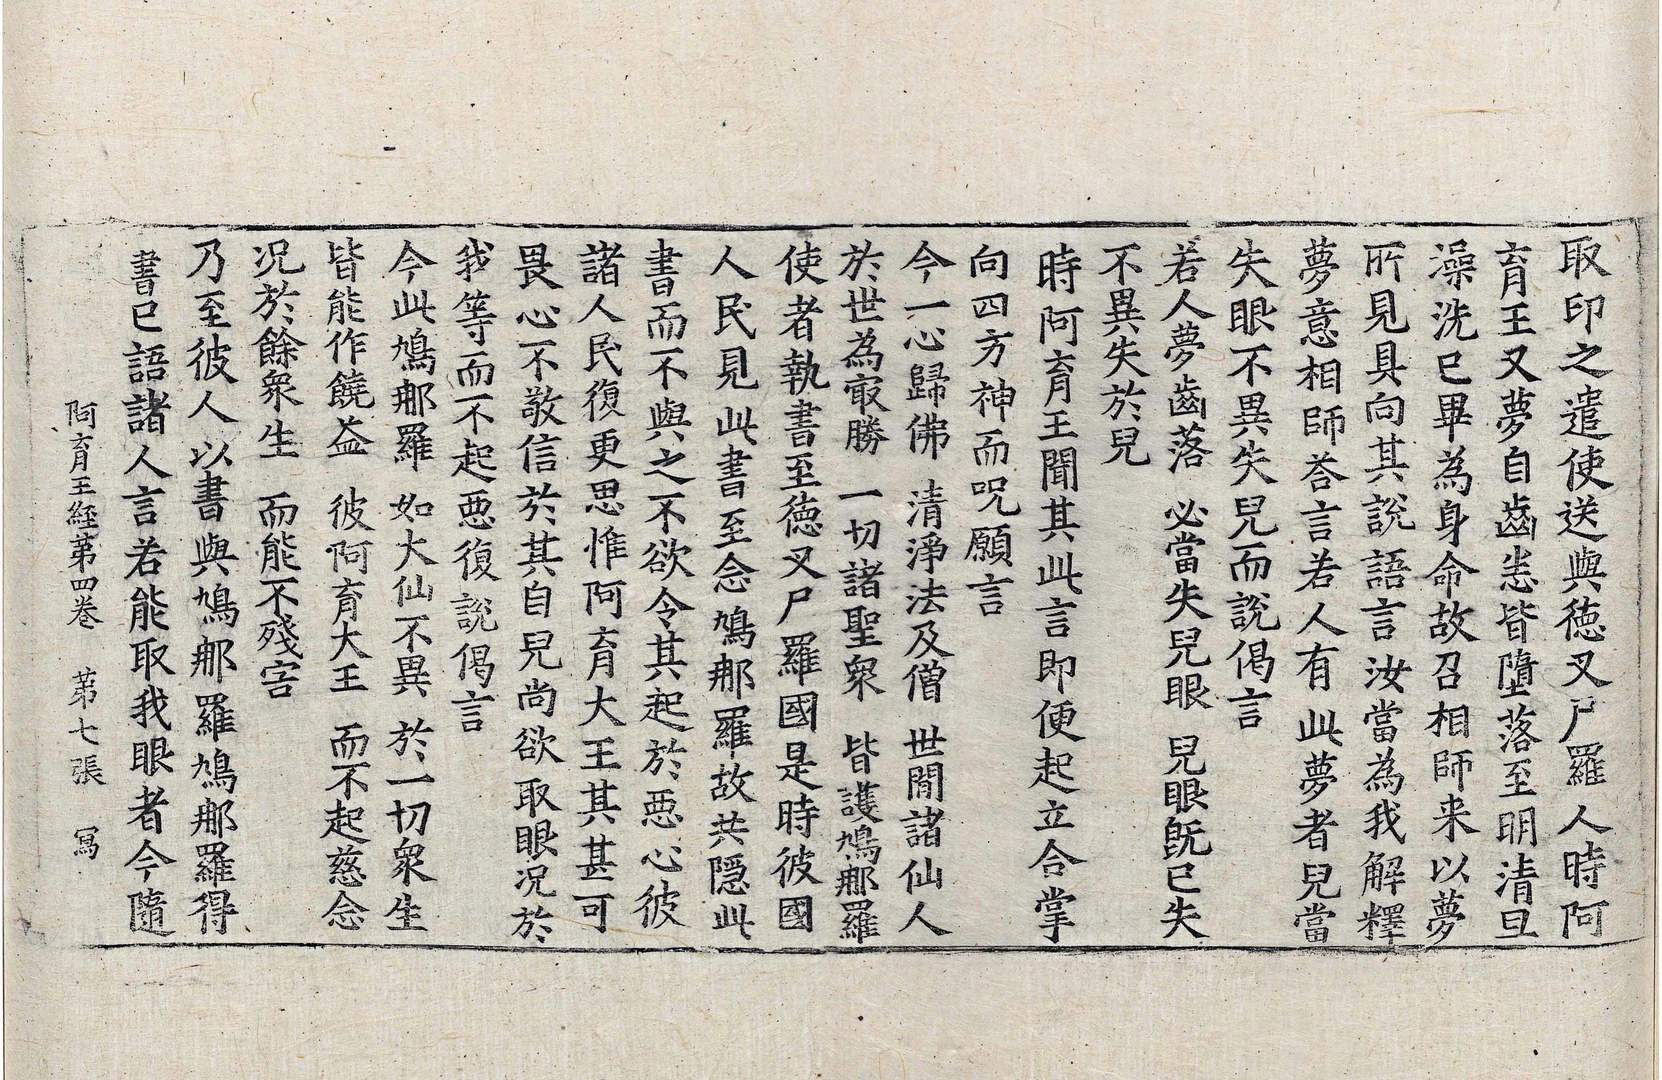 取印之遣使送與徳叉尸羅人時阿
育王又夢自齒悉皆墮落至明清旦
澡洗已畢為身命故召相師来以夢
所見具向其說語言汝當為我解釋
夢意相師荅言若人有此夢者兒當
失眼不異失兒而說偈言
若人夢齒落　必當失兒眼　兒眼旣已失
不異失於兒
時阿育王聞其此言即便起立合掌
向四方神而呪願言
今一心歸佛　清淨法及僧　世閒諸仙人
於世為㝡勝　一切諸聖衆　皆護鳩郍羅
使者執書至徳叉尸羅國是時彼國
人民見此書至念鳩郍羅故共隱此
書而不與之不欲令其起於惡心彼
諸人民復更思惟阿育大王其甚可
畏心不敬信於其自兒尚欲取眼况於
我等而不起惡復說偈言
今此鳩郍羅　如大仙不異　於一切衆生
皆能作饒益　彼阿育大王　而不起慈念
况於餘衆生　而能不殘害
乃至彼人以書與鳩郍羅鳩郍羅得
書已語諸人言若能取我眼者今隨
阿育王經第四卷　第七張　寫